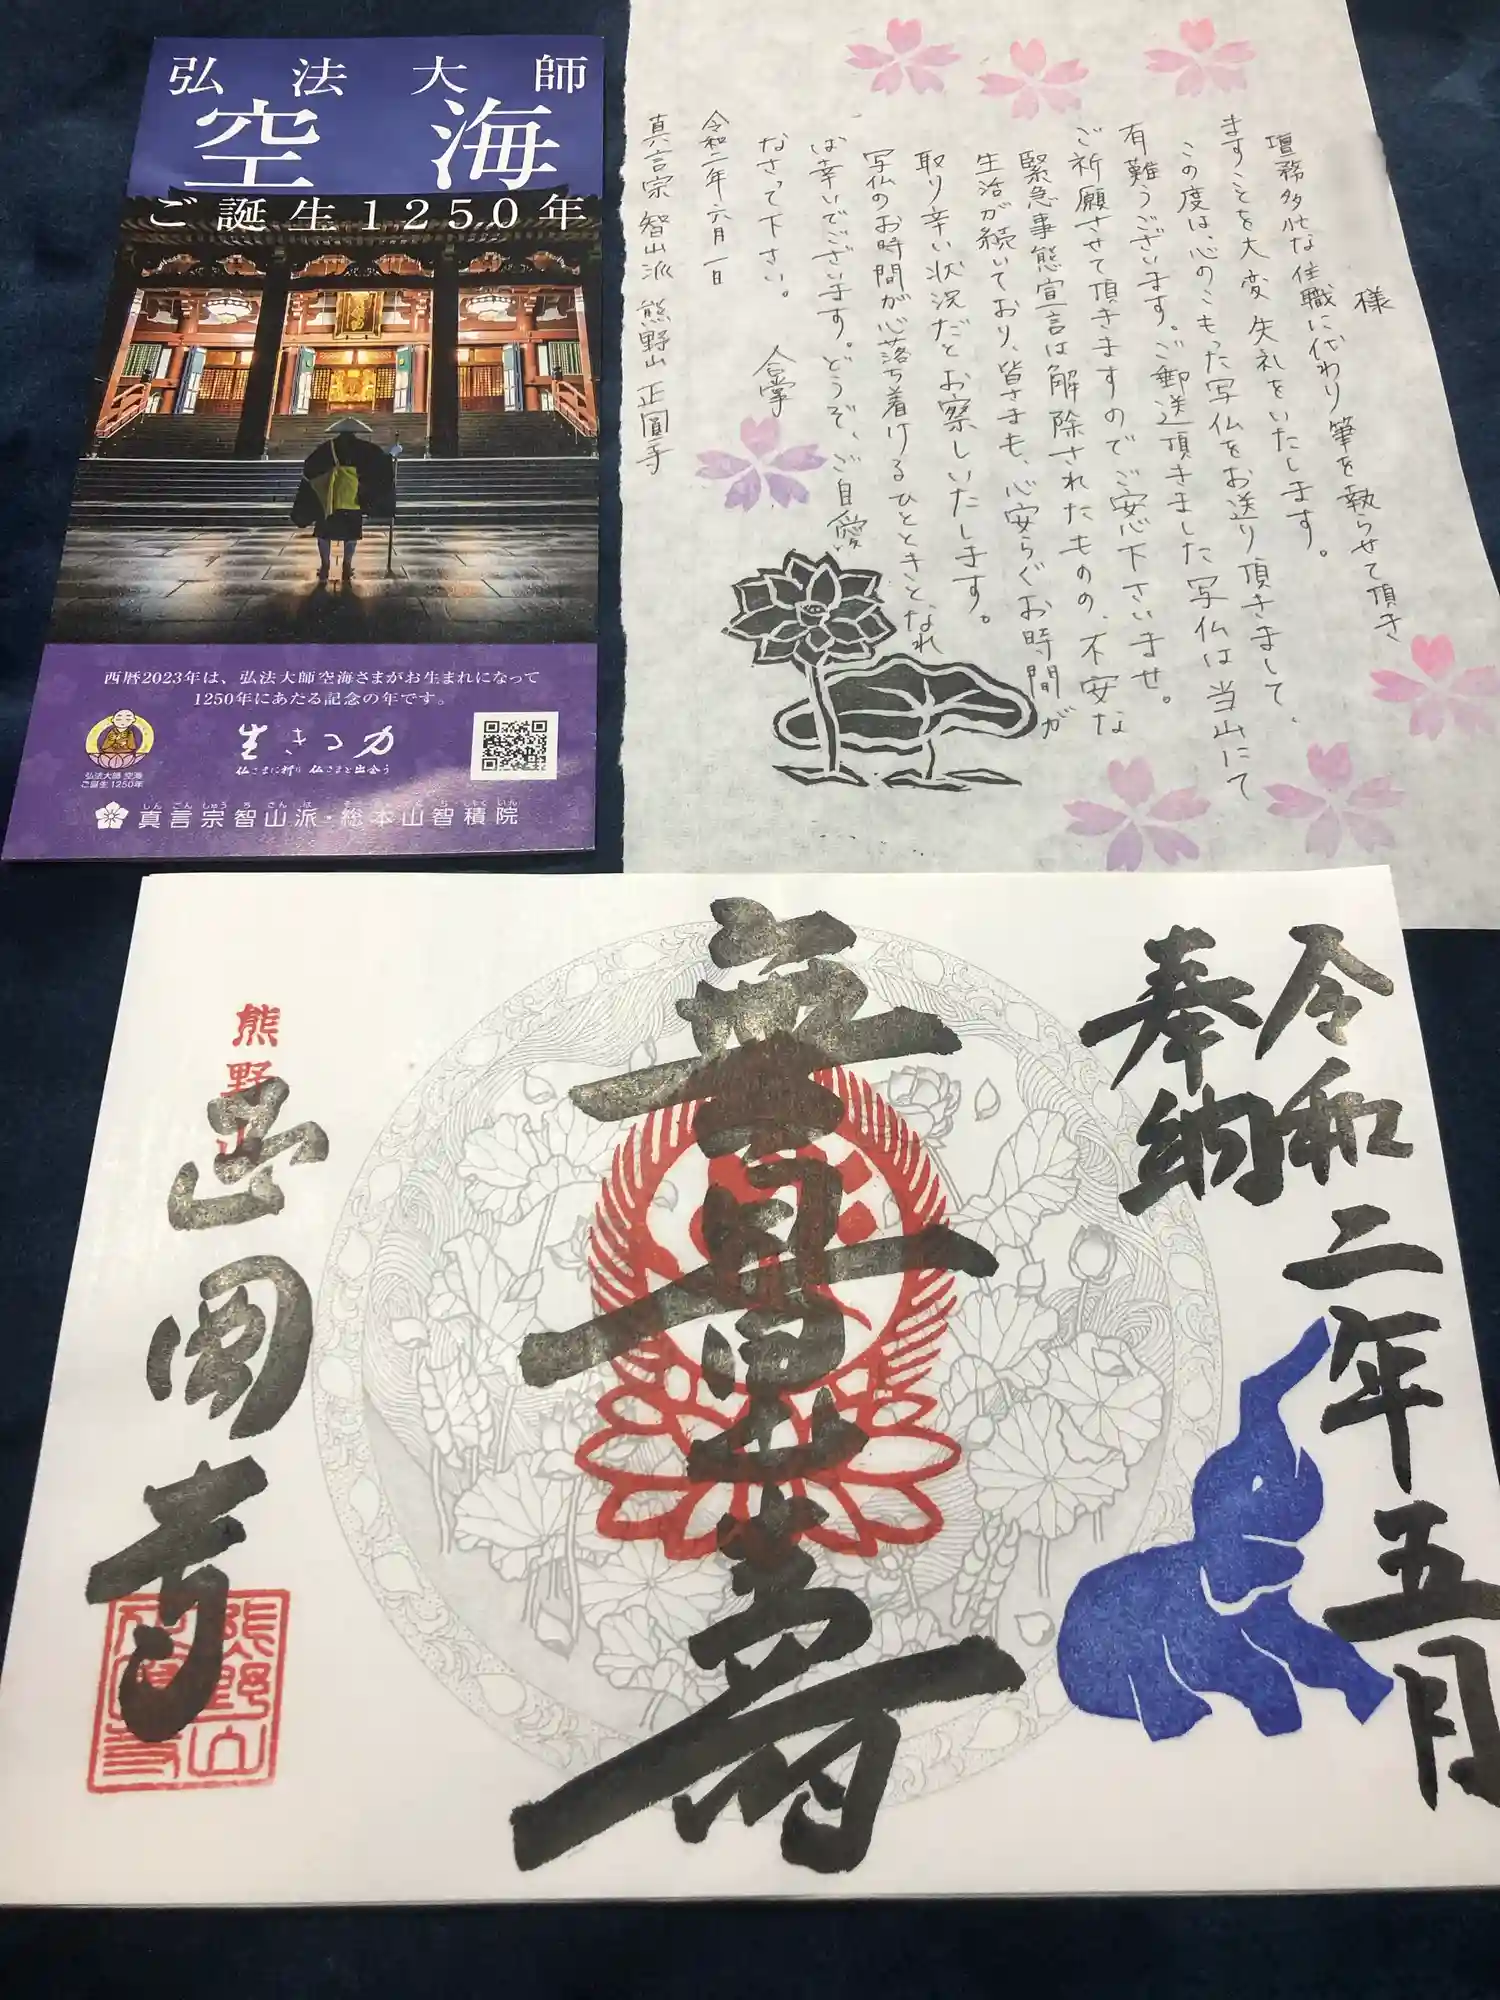 弘法大師
空海
ご誕生1250年
西暦2023年は、弘法大師空海さまがお生まれになって
1250年にあたる記念の年です。
生きる力
仏さまに祈り 仏さまと出会う
弘法大師 空海
ご誕生1250年
真言宗智山派・総本山智積院
様
壇務多忙な住職に代わり筆を執らせて頂き
ますことを大変失礼をいたします。
この度は、心のこもった写仏をお送り頂きまして、
有難うございます。ご郵送頂きました写仏は当山にて
ご祈願させて頂きますのでご安心下さいませ。
緊急事態宣言は解除されたものの、不安な
生活が続いており、皆さまも、心安らぐお時間が
取り辛い状況だとお察しいたします。
写仏のお時間が心落ち着けるひとときとなれ
ば幸いでございます。どうぞ、ご自愛
なさって下さい。
合掌
令和二年六月一日
真言宗智山派 熊野山 正圓寺
令和二年五月
奉納
無量寿
熊野山
正圓寺
熊野山
正圓寺